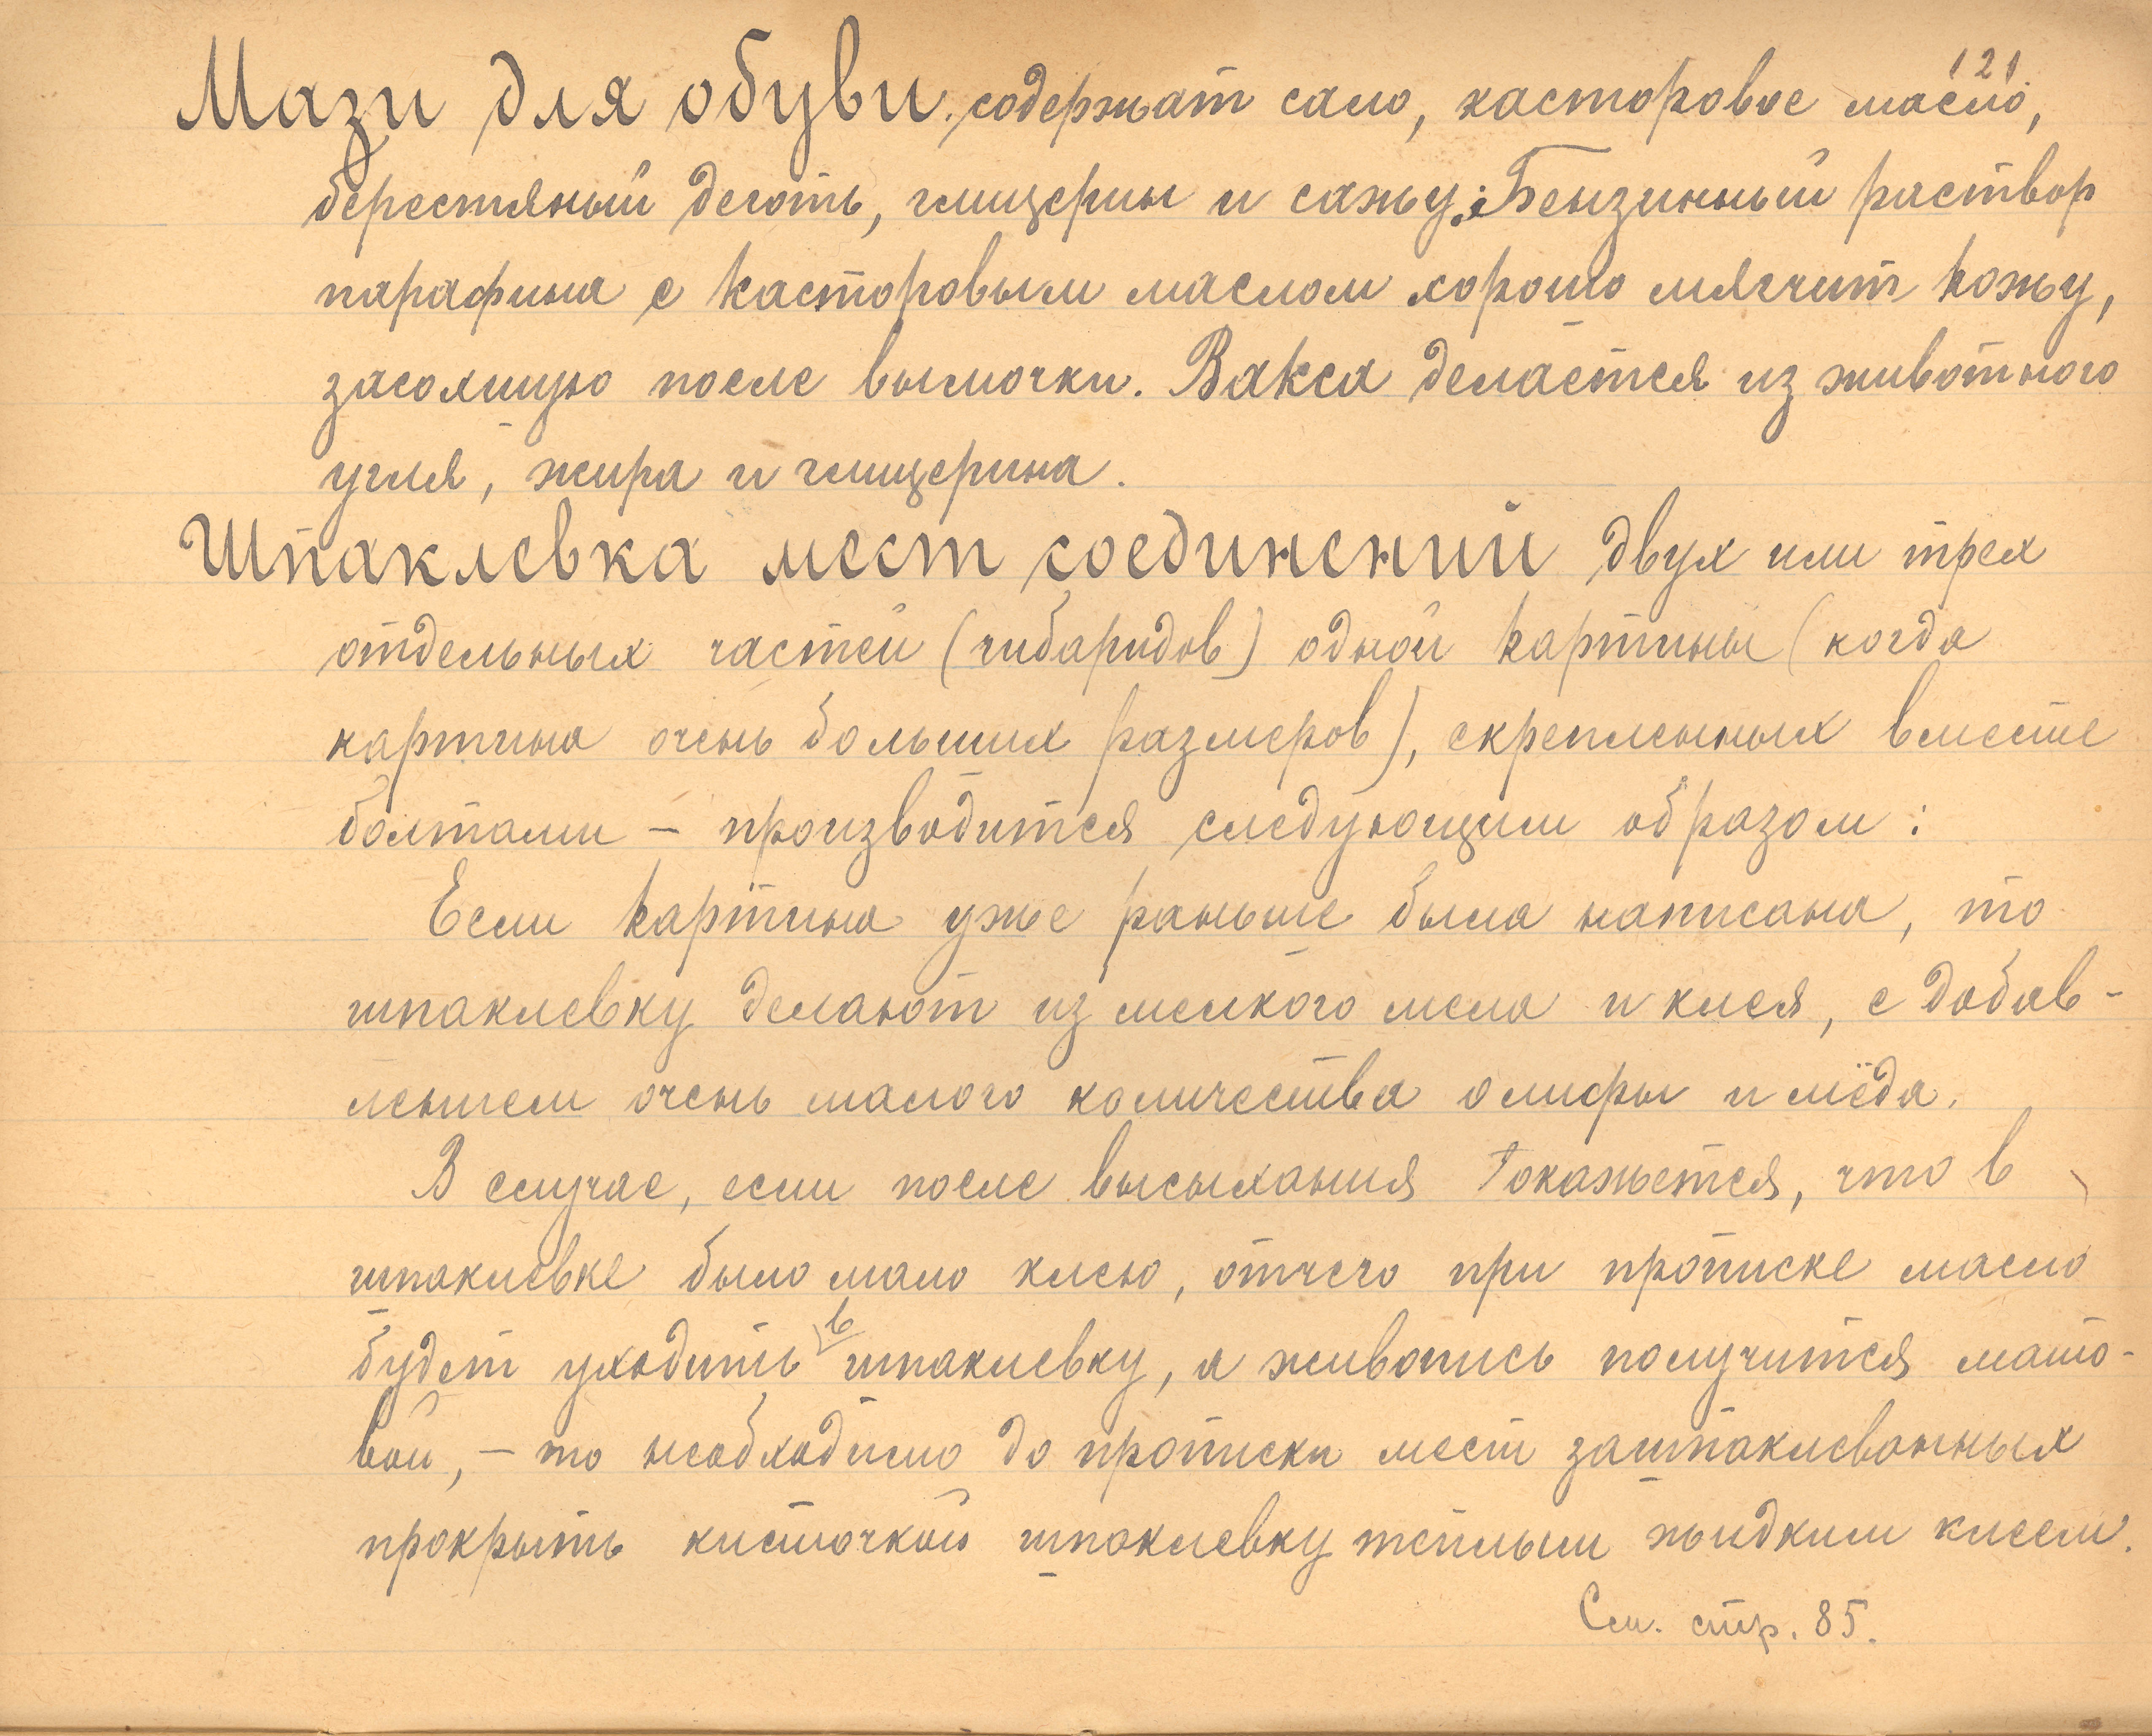 121.
Мази для обуви. содержат сало, касторовое масло,
берестяный деготь, глицерин и сажу. Бензинный раствор
парафина с касторовым маслом хорошо мягчит кожу,
засохшую после вымочки. Вакса делается из животного
угля, жира и глицерина.
Шпаклевка мест соединений двух или трех
отдельных частей (гибаридов) одной картины (когда
картина очень больших размеров), скрепленных вместе
болтами – производится следующим образом:
Если картина уже раньше была написана, то
шпаклевку делают из мелкого мела и клея, с добав-
леньем очень малого количества олифы и мёда.
В случае, если после высыхания окажется, что в
шпаклевке было мало клею, отчего при прописке масло
будет уходить в шпаклевку, а живопись получится мато-
вой, – то необходимо до прописки мест зашпаклеванных
прокрыть кисточкой шпаклевку теплым жидким клеем.
См. стр. 85.